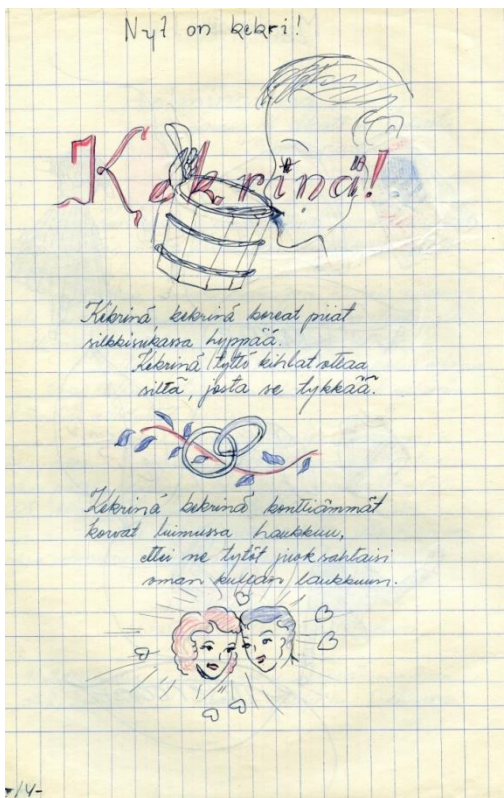 Nyt on kekri!
Kekrinä!
Kekrinä kekrinä koreat piiat
silkkisukassa hyppää.
Kekrinä tyttö kihlat ottaa
siltä, josta se tykkää.
Kekrinä kekrinä konttiämmät
korvat luimussa haukkuu,
ettei ne tytöt juoksahtaisi
oman kullan laukkuun.